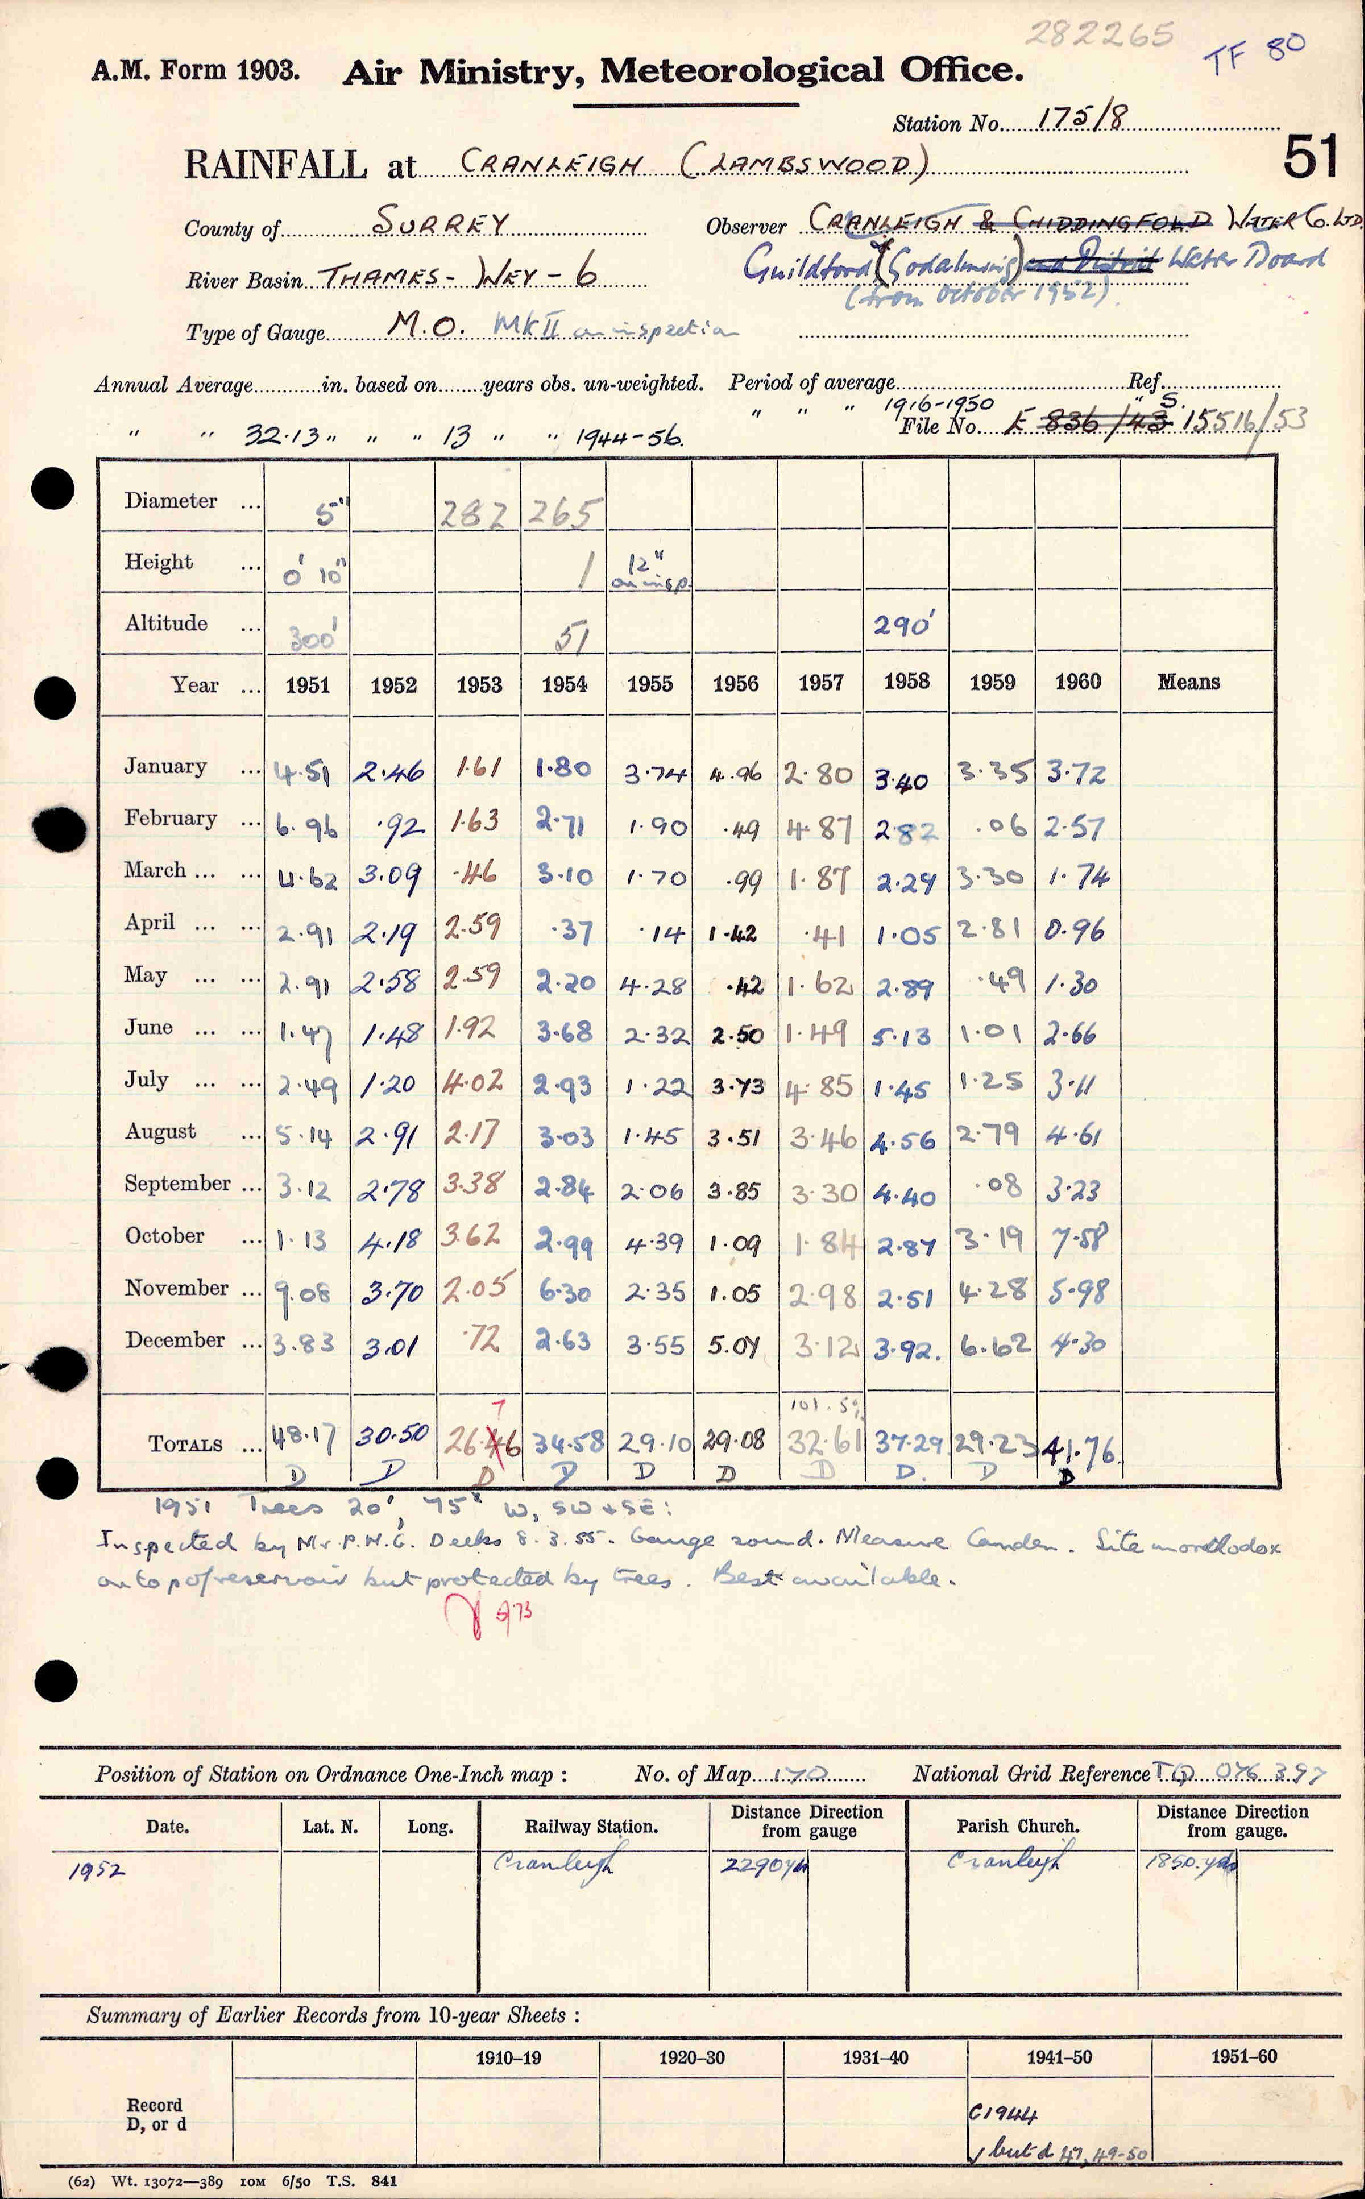 282265
TF 80
A.M. Form 1903. Air Ministry, Meteorological Office.
Station No. 175/8
51
RAINFALL at CRANLEIGH (LAMBSWOOD)
County of SURREY Observer CRANLEIGH & CHIDDINGFOLD WATER Co. LTD.
River Basin THAMES - WEY - 6 Guildford (& Godalming) and District Water Board
(from October 1952)
Type of Gauge M.O. MK II on inspection
Annual Average in. based on years obs. un-weighted. Period of average Ref.
" " " 1916-1950 " S.
" " 32.13 " " " 13 " " 1944-56. File No. E 836/43 15516/53
Diameter ... 5" 282 265
Height ... 0' 10" 1 12" on insp.
Altitude ... 300' 51 290'
Year ... 1951 1952 1953 1954 1955 1956 1957 1958 1959 1960 Means
January ... 4.51 2.46 1.61 1.80 3.74 4.96 2.80 3.40 3.35 3.72
February ... 6.96 .92 1.63 2.71 1.90 .49 4.87 2.82 .06 2.57
March ... ... 4.62 3.09 .46 3.10 1.70 .99 1.87 2.29 3.30 1.74
April ... ... 2.91 2.19 2.59 .37 .14 1.42 .41 1.05 2.81 0.96
May ... ... 2.91 2.58 2.59 2.20 4.28 .42 1.62 2.89 .49 1.30
June ... ... 1.47 1.48 1.92 3.68 2.32 2.50 1.49 5.13 1.01 2.66
July ... ... 2.49 1.20 4.02 2.93 1.22 3.73 4.85 1.45 1.25 3.11
August ... 5.14 2.91 2.17 3.03 1.45 3.51 3.46 4.56 2.79 4.61
September ... 3.12 2.78 3.38 2.84 2.06 3.85 3.30 4.40 .08 3.23
October ... 1.13 4.18 3.62 2.99 4.39 1.09 1.84 2.87 3.19 7.58
November ... 9.08 3.70 2.05 6.30 2.35 1.05 2.98 2.51 4.28 5.98
December ... 3.83 3.01 .72 2.63 3.55 5.07 3.12 3.92. 6.62 4.30
7 101.5%
TOTALS ... 48.17 30.50 26.46 34.58 29.10 29.08 32.61 37.29 29.23 41.76
D D D D D D D D. D D
1951 Trees 20', 75° W, SW & SE:
Inspected by Mr. P.H.G. Deeks 8.3.55. Gauge sound. Measure Camden. Site unorthodox
on top of reservoir but protected by trees. Best available.
5/73
Position of Station on Ordnance One-Inch map : No. of Map 170 National Grid Reference TQ 076 397
Date. Lat. N. Long. Railway Station. Distance Direction from gauge Parish Church. Distance Direction from gauge.
1952 Cranleigh 2290 yds Cranleigh 1850 yds
Summary of Earlier Records from 10-year Sheets :
1910–19 1920–30 1931–40 1941–50 1951–60
Record
D, or d
C1944
√ but d 47, 49-50
(62) Wt. 13072—389 10M 6/50 T.S. 841